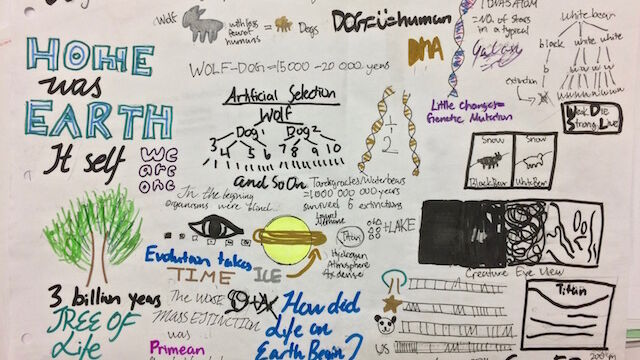 Wolf
with less
fear of
humans
=
Dogs
DOG=Ü=human
DNA
1 DNA ATOM
=NO. of stars
in a typical
Galaxy
white bear
black white white
b w w w
extinction
HOME
was
EARTH
It self
We
are
one
WOLF-DOG=15000-20 000 years
Artificial Selection
Wolf
Dog1 Dog2
3 4 5 6 7 8 9 10
and So On
1
2
Little changes=
Genetic Mutation
Weak Die
Strong Live
Snow
Black Bear
Snow
White Bear
Tardigrades/Waterbears
=1000 000 000 years
survived 5 extinctions
In the beginning
organisms were blind...
Liquid
Methane
Titan
=LAKE
Hydrogen
Atmosphere
4x denser
Evolution takes
TIME
ICE
Creature Eye View
Titan
US
3 billion years
TREE OF
Life
The WORSE
MASS EXTINCTION
was
Primean
How did
Life on
Earth Begin?
200°m